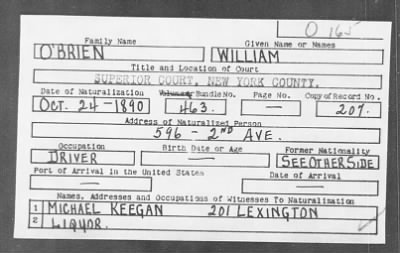 O 165
Family Name Given Name or Names
O'BRIEN WILLIAM
Title and Location of Court
SUPERIOR COURT, NEW YORK COUNTY.
Date of Naturalization Volume or Bundle No. Page No. Copy of Record No.
OCT. 24-1890 463. — 207.
Address of Naturalized Person
596 - 2ND AVE.
Occupation Birth Date or Age Former Nationality
DRIVER — SEE OTHER SIDE
Port of Arrival in the United States Date of Arrival
— —
Names, Addresses and Occupations of Witnesses To Naturalization
1 MICHAEL KEEGAN 201 LEXINGTON
2 LIQUOR.